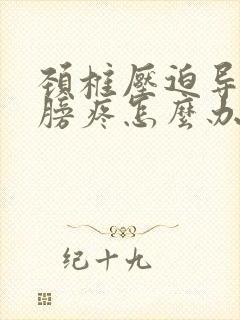 颈柱壓迫导
膀疼怎麼办
纪十九